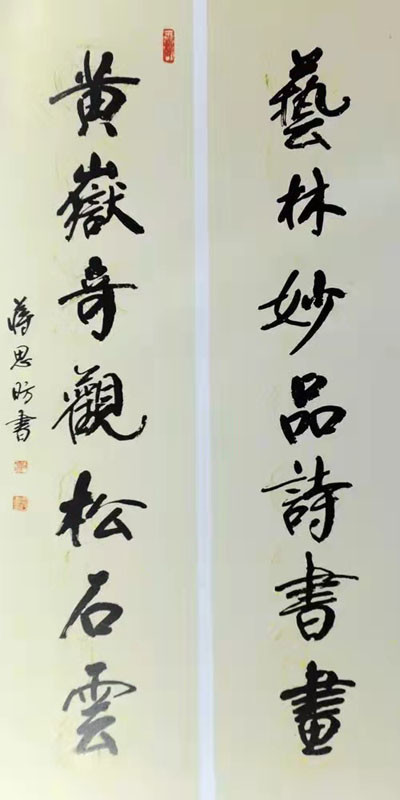 藝林妙品詩書畫
黄嶽奇觀松石雲
蔣思昉書